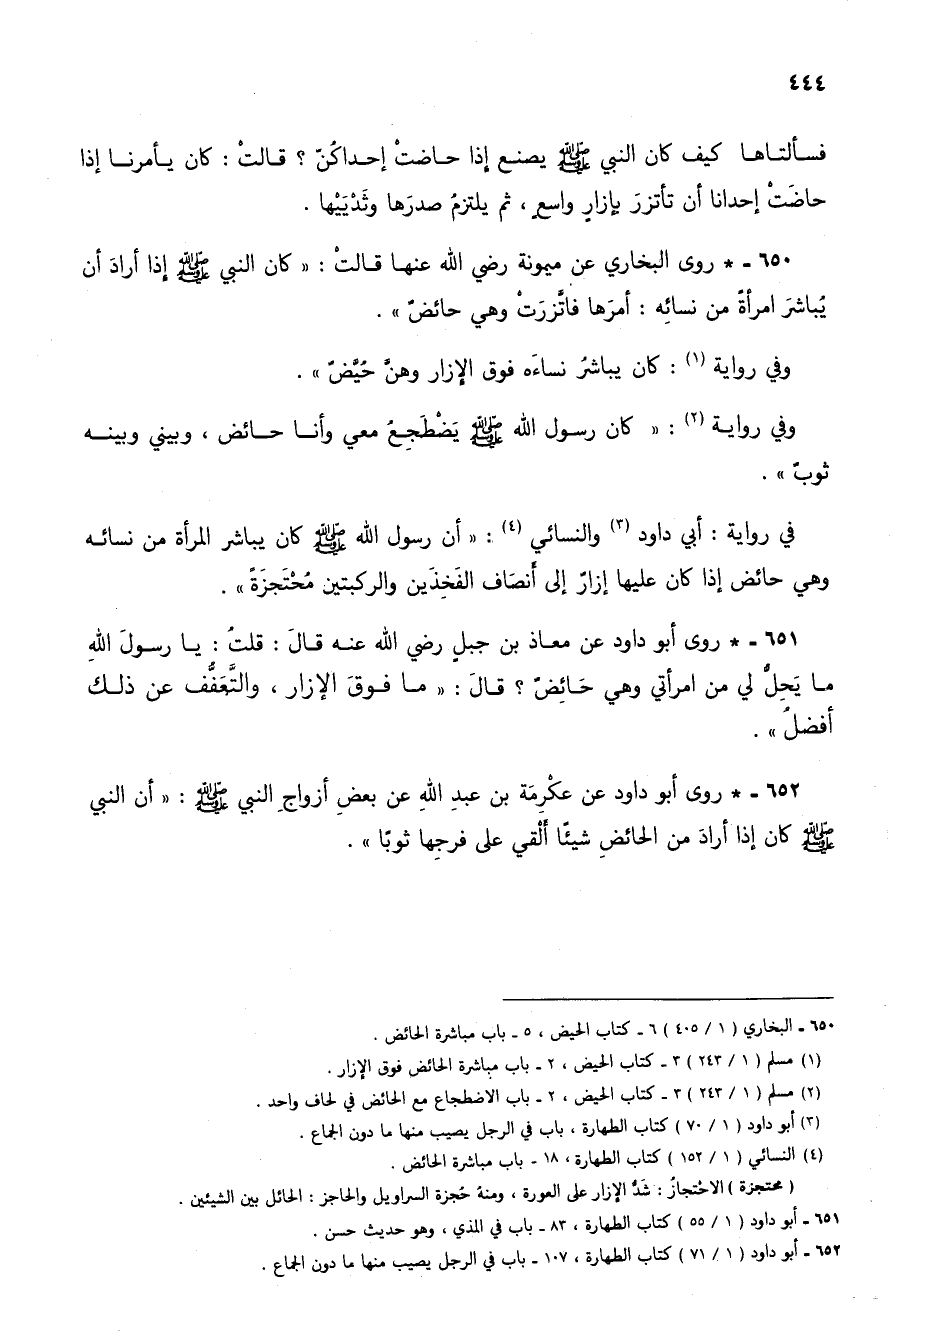 ٤٤٤
فسألتاها كيف كان النبي ﷺ يصنع إذا حاضتْ إحداكُنّ ؟ قالتْ : كان يأمرنا إذا
حاضَتْ إحدانا أن تأتزرَ بإزارٍ واسعٍ ، ثم يلتزمُ صدرَها وثَدْيَيْها .
٦٥٠ ـ * روى البخاري عن ميمونة رضي الله عنها قالتْ : « كان النبي ﷺ إذا أرادَ أن
يُباشرَ امرأةً من نسائِه : أمرَها فاتَّزرَتْ وهي حائضٌ » .
وفي رواية (١) : كان يباشرُ نساءَه فوق الإزار وهنَّ حُيَّضٌ » .
وفي رواية (٢) : « كان رسول الله ﷺ يَضْطَجِعُ معي وأنا حائض ، وبيني وبينه
ثوبٌ » .
في رواية : أبي داود (٣) والنسائي (٤) : « أن رسول الله ﷺ كان يباشر المرأة من نسائه
وهي حائض إذا كان عليها إزارٌ إلى أنصَاف الفَخِذَين والركبتين مُحْتَجزَةً » .
٦٥١ ـ * روى أبو داود عن معاذ بن جبلٍ رضي الله عنه قالَ : قلتُ : يا رسولَ اللهِ
ما يَحِلُّ لي من امرأتي وهي حَائِضٌ ؟ قالَ : « ما فوقَ الإزار ، والتَّعَفُّف عن ذلك
أفضلُ » .
٦٥٢ ـ * روى أبو داود عن عكْرِمَة بن عبدِ اللهِ عن بعضِ أزواجِ النبي ﷺ : « أن النبي
ﷺ كان إذا أرادَ من الحائضِ شيئًا ألْقي على فرجِها ثوبًا » .
٦٥٠ ـ البخاري ( ١ / ٤٠٥ ) ٦ ـ كتاب الحيض ، ٥ ـ باب مباشرة الحائض .
(١) مسلم ( ١ / ٢٤٣ ) ٣ ـ كتاب الحيض ، ٢ ـ باب مباشرة الحائض فوق الإزار .
(٢) مسلم ( ١ / ٢٤٣ ) ٣ ـ كتاب الحيض ، ٢ ـ باب الاضطجاع مع الحائض في لحاف واحد .
(٣) أبو داود ( ١ / ٧٠ ) كتاب الطهارة ، باب في الرجل يصيب منها ما دون الجماع .
(٤) النسائي ( ١ / ١٥٢ ) كتاب الطهارة ، ١٨ - باب مباشرة الحائض .
( محتجزة ) الاحْتجازُ : شَدُّ الإزار على العورة ، ومنهُ حُجزة السراويل والحاجز : الحائل بين الشيئين .
٦٥١ ـ أبو داود ( ١ / ٥٥ ) كتاب الطهارة ، ٨٣ ـ باب في المذي ، وهو حديث حسن .
٦٥٢ ـ أبو داود ( ١ / ٧١ ) كتاب الطهارة ، ١٠٧ ـ باب في الرجل يصيب منها ما دون الجماع .